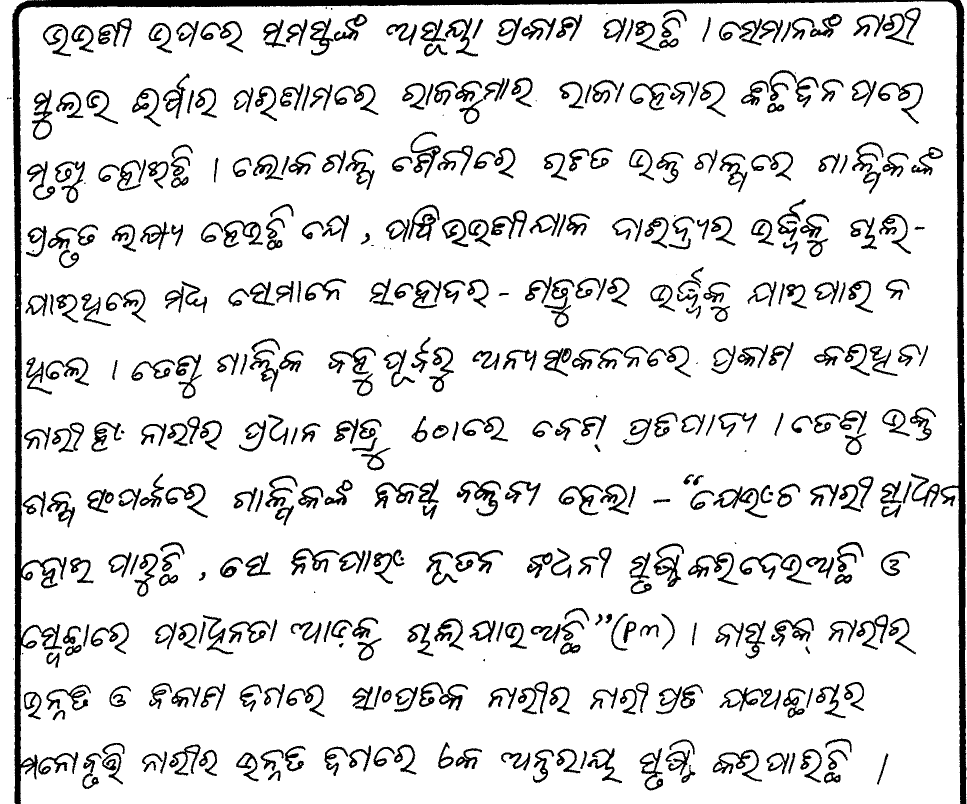 ଭଉଣୀ ଉପରେ ସମସ୍ତଙ୍କ ଅସୂୟା ପ୍ରକାଶ ପାଇଛି । ସେମାନଙ୍କ ନାରୀ
ସୁଲଭ ଈର୍ଷାର ପରିଣାମରେ ରାଜକୁମାର ରାଜା ହେବାର କିଛିଦିନ ପରେ
ମୃତ୍ୟୁ ହୋଇଛି । ଲୋକଗଳ୍ପ ଶୈଳୀରେ ରଚିତ ଉକ୍ତ ଗଳ୍ପରେ ଗାଳ୍ପିକଙ୍କ
ପ୍ରକୃତ ଲକ୍ଷ୍ୟ ହେଉଛି ଯେ, ପାଞ୍ଚିଭଉଣୀଯାକ ଦାରିଦ୍ର୍ୟର ଉର୍ଦ୍ଧ୍ୱକୁ ଚାଲି-
ଯାଇଥିଲେ ମଧ୍ୟ ସେମାନେ ସହୋଦର - ଶତ୍ରୁତାର ଉର୍ଦ୍ଧ୍ୱକୁ ଯାଇପାରି ନ
ଥିଲେ । ତେଣୁ ଗାଳ୍ପିକ ବହୁ ପୂର୍ବରୁ ଅନ୍ୟସଂକଳନରେ ପ୍ରକାଶ କରିଥିବା
ନାରୀ ହିଁ ନାରୀର ପ୍ରଧାନ ଶତ୍ରୁ ଠାରେ ବେଶ୍ ପ୍ରତିପାଦ୍ୟ । ତେଣୁ ଉକ୍ତ
ଗଳ୍ପ ସଂପର୍କରେ ଗାଳ୍ପିକଙ୍କ ନିଜସ୍ୱ ବକ୍ତବ୍ୟ ହେଲା – “ଯେଉଁଠି ନାରୀ ସ୍ୱାଧୀନ
ହୋଇ ପାରୁଛି, ସେ ନିଜପାଇଁ ନୂତନ ବଂଧନୀ ସୃଷ୍ଟି କରିଦେଇଅଛି ଓ
ସ୍ୱେଚ୍ଛାରେ ପରାଧିନତା ଆଡ଼କୁ ଚାଲିଯାଇଅଛି”(୧୩) । ବାସ୍ତବିକ୍ ନାରୀର
ଉନ୍ନତି ଓ ବିକାଶ ଦିଗରେ ସାଂପ୍ରତିକ ନାରୀର ନାରୀ ପ୍ରତି ଯଥେଚ୍ଛାଚାର
ମନୋବୃତ୍ତି ନାରୀର ଉନ୍ନତି ଦିଗରେ ଏକ ଅନ୍ତରାୟ ସୃଷ୍ଟି କରିପାରିଛି ।